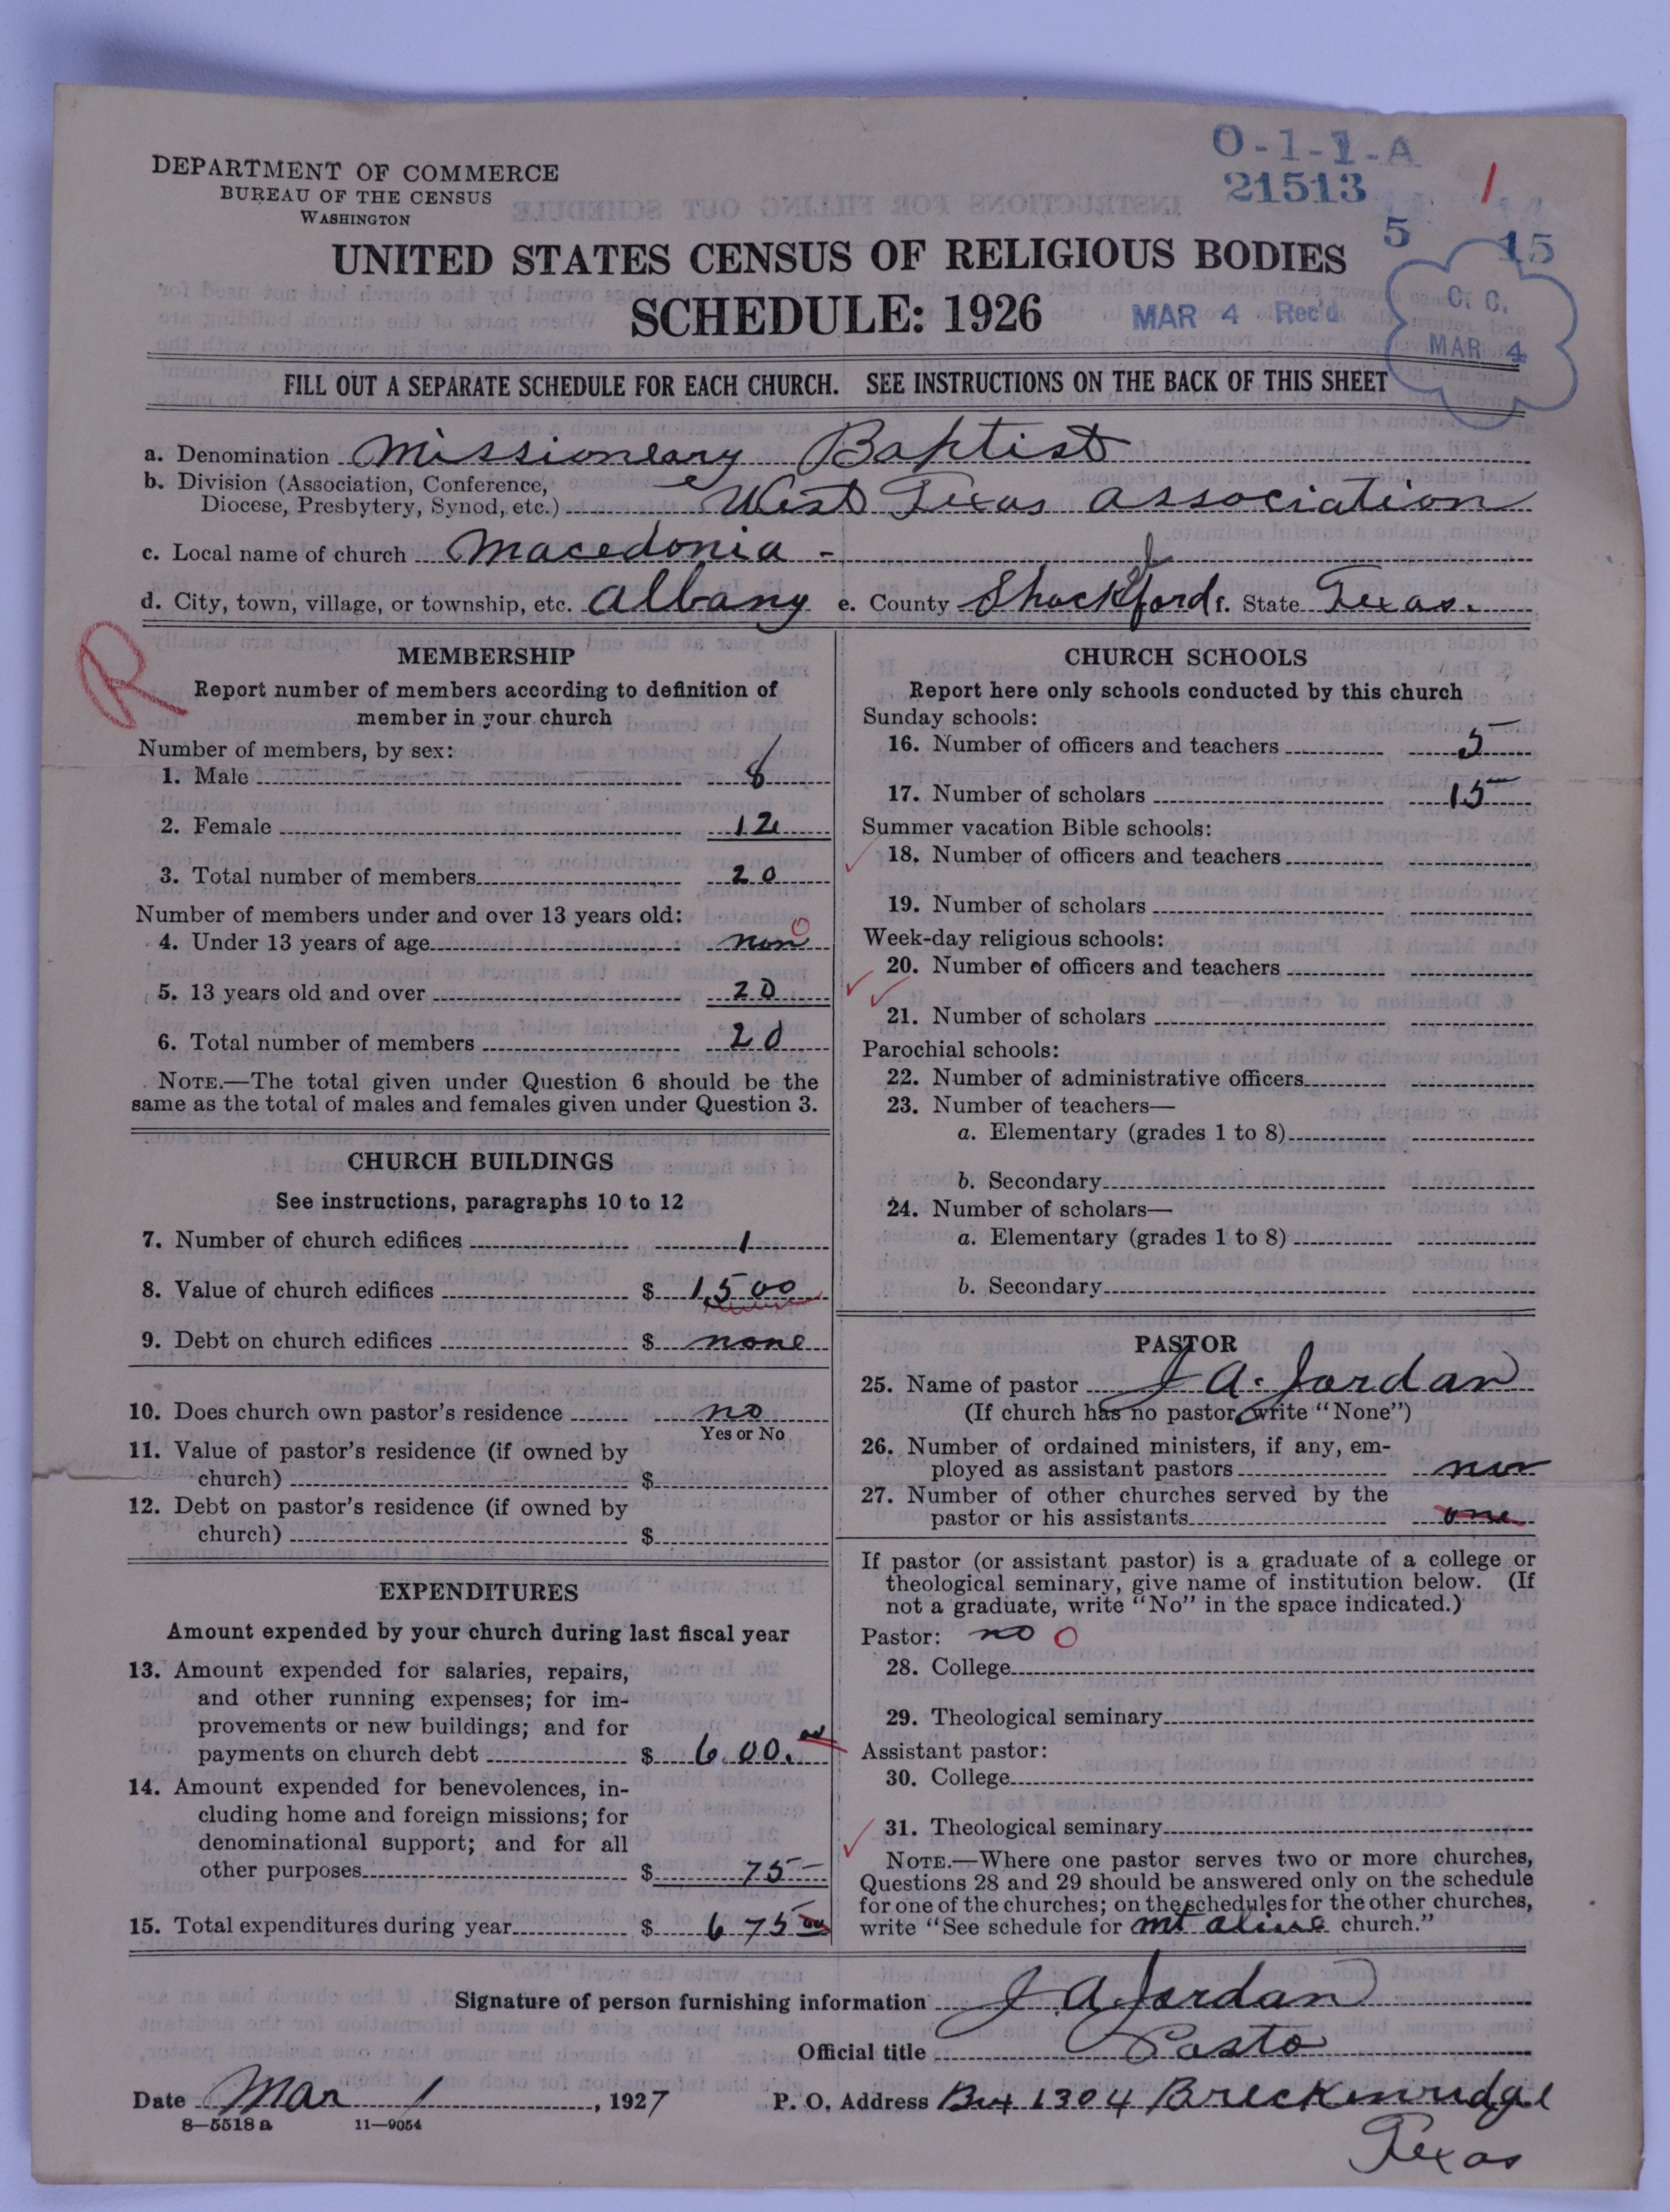 O-1-1-A
21513
1
5 15
DEPARTMENT OF COMMERCE
BUREAU OF THE CENSUS
WASHINGTON
UNITED STATES CENSUS OF RELIGIOUS BODIES
SCHEDULE: 1926
MAR 4 Rec'd
C. C.
MAR 4
FILL OUT A SEPARATE SCHEDULE FOR EACH CHURCH. SEE INSTRUCTIONS ON THE BACK OF THIS SHEET
a. Denomination Missioneary Baptist
b. Division (Association, Conference,
Diocese, Presbytery, Synod, etc.) West Texas association
c. Local name of church Macedonia -
d. City, town, village, or township, etc. albany e. County Shackelford f. State Texas.
R
MEMBERSHIP
Report number of members according to definition of
member in your church
Number of members, by sex:
1. Male 8
2. Female 12
3. Total number of members 20
Number of members under and over 13 years old:
4. Under 13 years of age non 0
5. 13 years old and over 20
6. Total number of members 20
NOTE.—The total given under Question 6 should be the
same as the total of males and females given under Question 3.
CHURCH BUILDINGS
See instructions, paragraphs 10 to 12
7. Number of church edifices 1
8. Value of church edifices $ 1,500
9. Debt on church edifices $ none
10. Does church own pastor's residence no
Yes or No
11. Value of pastor's residence (if owned by
church) $
12. Debt on pastor's residence (if owned by
church) $
EXPENDITURES
Amount expended by your church during last fiscal year
13. Amount expended for salaries, repairs,
and other running expenses; for im-
provements or new buildings; and for
payments on church debt $ 600.00
14. Amount expended for benevolences, in-
cluding home and foreign missions; for
denominational support; and for all
other purposes $ 75-
15. Total expenditures during year $ 675 00
CHURCH SCHOOLS
Report here only schools conducted by this church
Sunday schools:
16. Number of officers and teachers 5
17. Number of scholars 15
Summer vacation Bible schools:
18. Number of officers and teachers
19. Number of scholars
Week-day religious schools:
20. Number of officers and teachers
21. Number of scholars
Parochial schools:
22. Number of administrative officers
23. Number of teachers—
a. Elementary (grades 1 to 8)
b. Secondary
24. Number of scholars—
a. Elementary (grades 1 to 8)
b. Secondary
PASTOR
25. Name of pastor J A. Jordan
(If church has no pastor, write "None")
26. Number of ordained ministers, if any, em-
ployed as assistant pastors non
27. Number of other churches served by the
pastor or his assistants one
If pastor (or assistant pastor) is a graduate of a college or
theological seminary, give name of institution below. (If
not a graduate, write "No" in the space indicated.)
Pastor: no 0
28. College
29. Theological seminary
Assistant pastor:
30. College
31. Theological seminary
NOTE.—Where one pastor serves two or more churches,
Questions 28 and 29 should be answered only on the schedule
for one of the churches; on the schedules for the other churches,
write "See schedule for mt alive church."
Signature of person furnishing information J A Jordan
Official title Pasto
Date Mar 1, 1927 P. O. Address Box 1304 Breckenridge
Texas
8—5518 a 11—9054